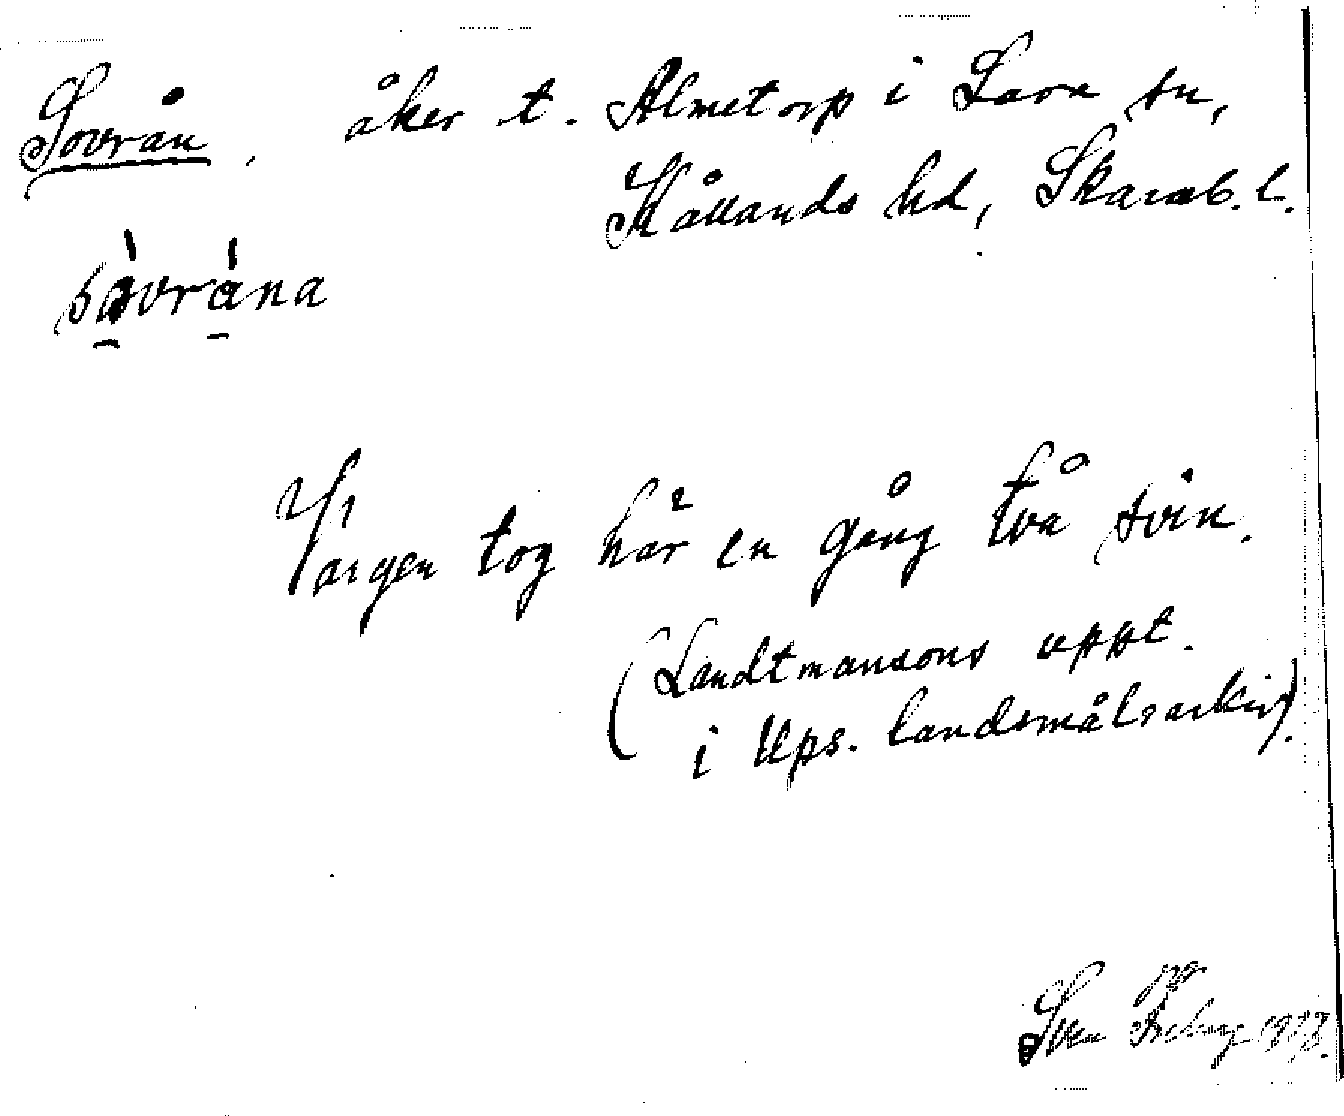 Sovrån, åker t. Almetorp i Lava sn,
Kållands hd, Skarab. l.
såvråna
Vargen tog här en gång två svin.
(Landtmansons uppt.
i Ups. landsmålsarkiv).
Sven